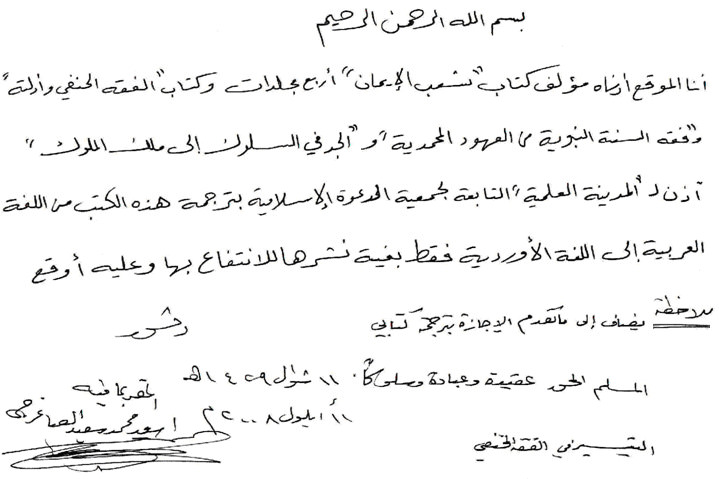 بسم الله الرحمن الرحيم
أنا الموقع أدناه مؤلف كتاب "شعب الإيمان" أربع مجلدات وكتاب "الفقه الحنفي وأدلته"
و"فقه السنة النبوية من العهود المحمدية" و"الجد في السلوك إلى ملك الملوك"
آذن لـ "المدينة العلمية" التابعة لجمعية الدعوة الإسلامية بترجمة هذه الكتب من اللغة
العربية إلى اللغة الأوردية فقط بغية نشرها للانتفاع بها وعليه أوقع
ملاحظة يضاف إلى ما تقدم الإجازة بترجمة كتابي
دمشق
المسلم الحق عقيدة وعبادة وسلوكاً. ١١ شوال ١٤٢٩ هـ
المقر بما فيه
١١ أيلول ٢٠٠٨ م
أسعد محمد سعيد الصاغرجي
التيسير في الفقه الحنفي